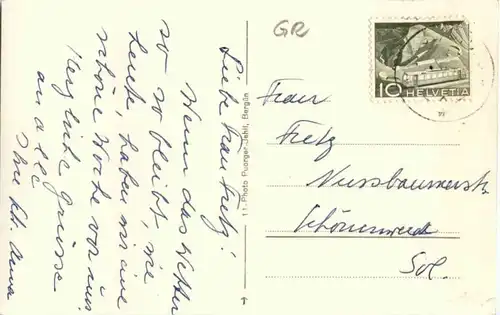 Liebe Frau Fretz!
Wenn das Wetter
so bleibt, wie
heute, haben wir eine
schöne Woche vor uns.
Herzliche Grüsse
an alle
Ihre
11-Photo Puorger-Jehli, Bergün
GR
10 HELVETIA
Frau
Fretz
Nussbaumerstr.
Schönenwerd
Sol.